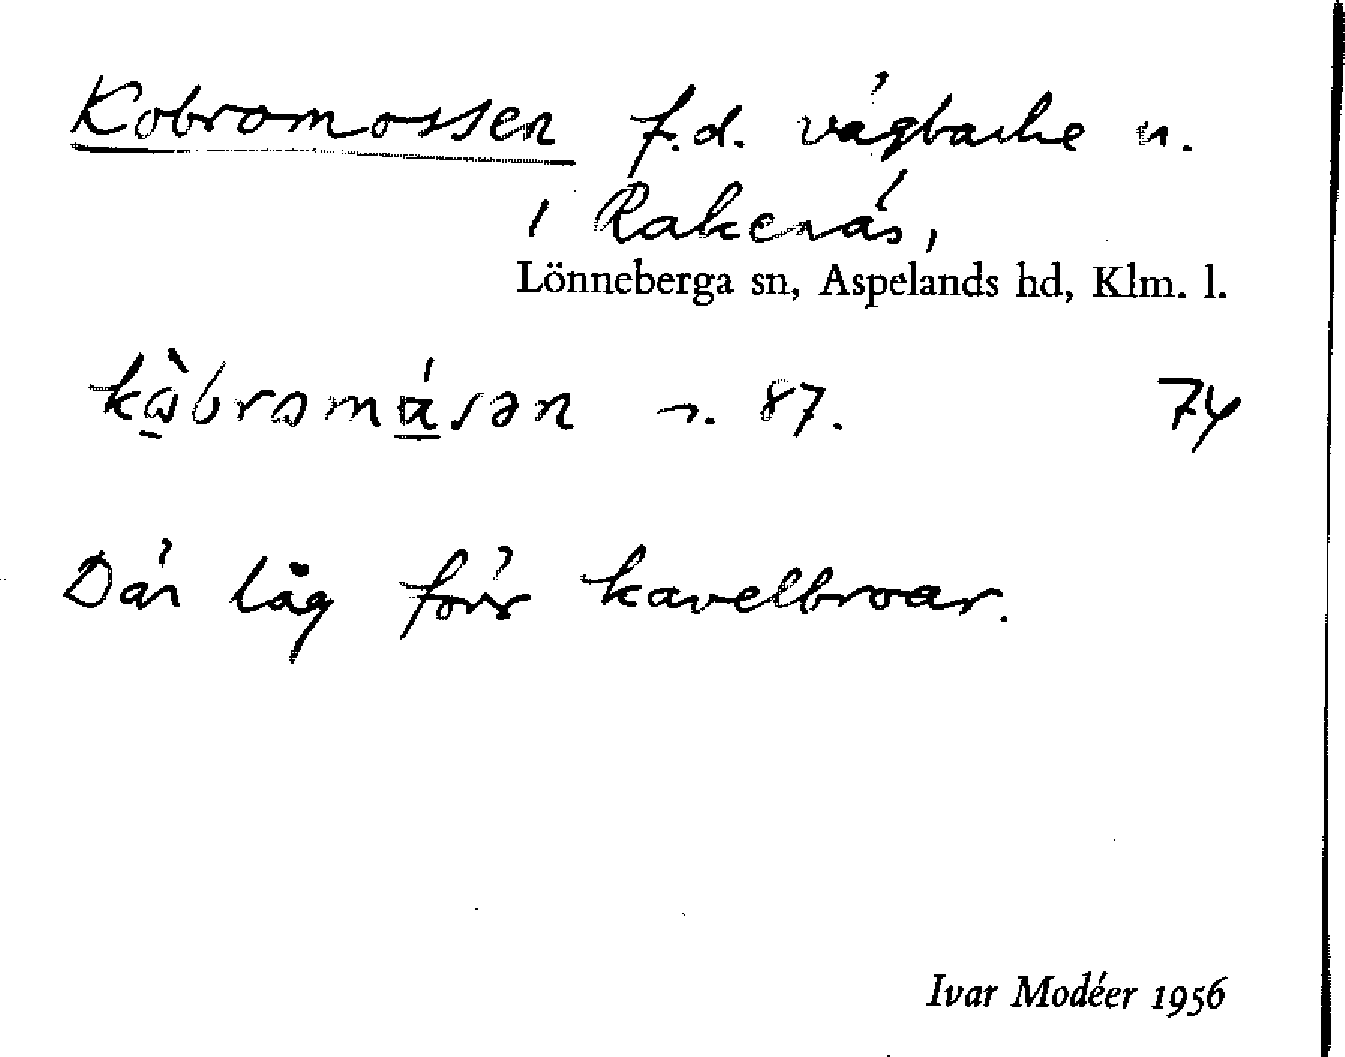 Kobromossen f.d. vägbacke n.
i Rakenäs,
Lönneberga sn, Aspelands hd, Klm. l.
n. 87. 74
Där låg förr kavelbroar.
Ivar Modéer 1956